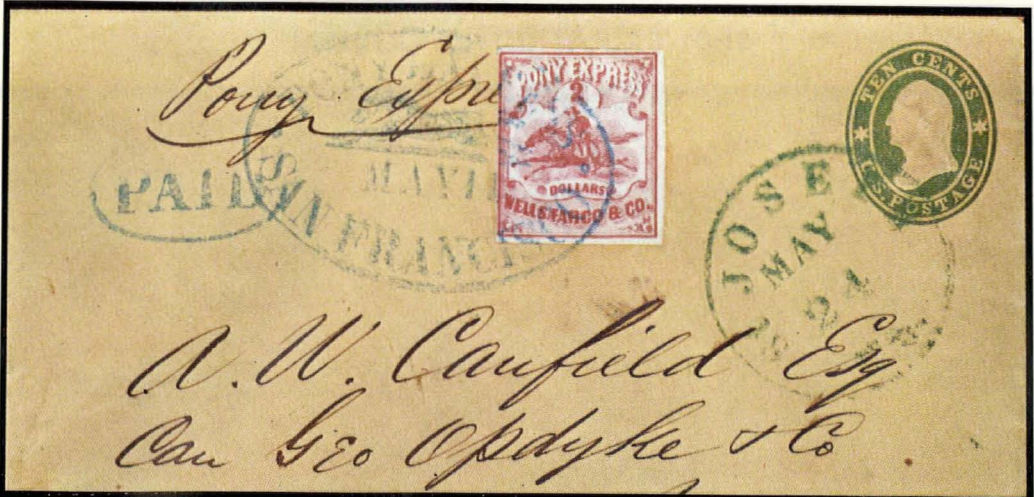 Pony Expre
PAID
MAY 11
SAN FRANCISCO
PONY EXPRESS
2
DOLLARS
WELLS, FARGO & CO.
TEN CENTS
U.S. POSTAGE
JOSE
MAY
24
A. W. Canfield Esq
Care Geo Opdyke & Co